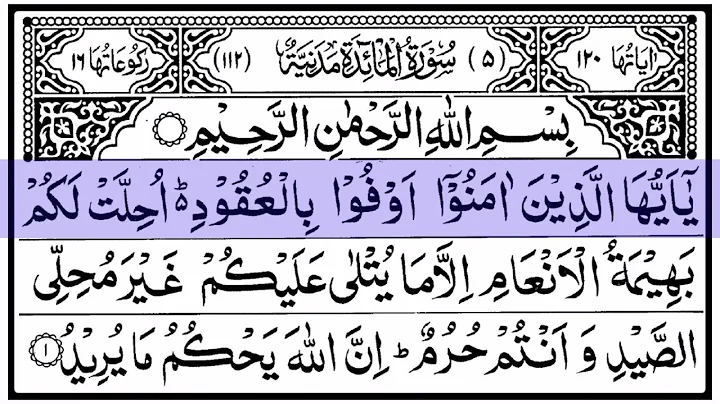 اٰیَاتُهَا ١٢٠ (٥) سُوْرَةُ الْمَآئِدَةِ مَدَنِيَّةٌ (١١٢) رُكُوْعَاتُهَا ١٦
بِسْمِ اللّٰهِ الرَّحْمٰنِ الرَّحِيْمِ
يٰٓاَيُّهَا الَّذِيْنَ اٰمَنُوْۤا اَوْفُوْا بِالْعُقُوْدِ ؕ اُحِلَّتْ لَكُمْ
بَهِيْمَةُ الْاَنْعَامِ اِلَّا مَا يُتْلٰى عَلَيْكُمْ غَيْرَ مُحِلِّى
الصَّيْدِ وَ اَنْتُمْ حُرُمٌ ؕ اِنَّ اللّٰهَ يَحْكُمُ مَا يُرِيْدُ ١